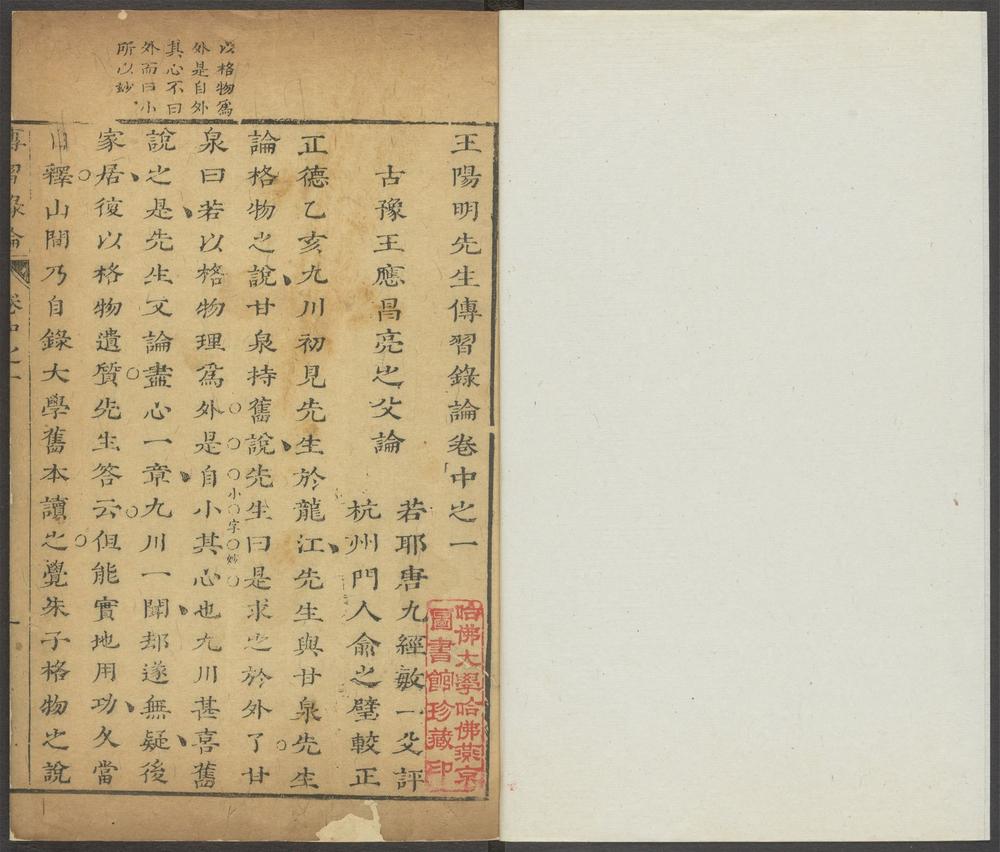 王陽明先生傳習錄論卷中之一
古豫王應昌亮之父論
若耶唐九經敏一父評
杭州門人俞之璧較正
正德乙亥九川初見先生於龍江先生與甘泉先生
論格物之說甘泉持舊說先生曰是求之於外了甘
泉曰若以格物理為外是自小其心也九川甚喜舊
小字妙
說之是先生又論盡心一章九川一聞却遂無疑後
家居復以格物遺質先生答云但能實地用功久當
自釋山間乃自錄大學舊本讀之覺朱子格物之說
以格物為
外是自外
其心不曰
外而曰小
所以妙
傳習錄論
卷中之一
一
哈佛大學哈佛燕京
圖書館珍藏印